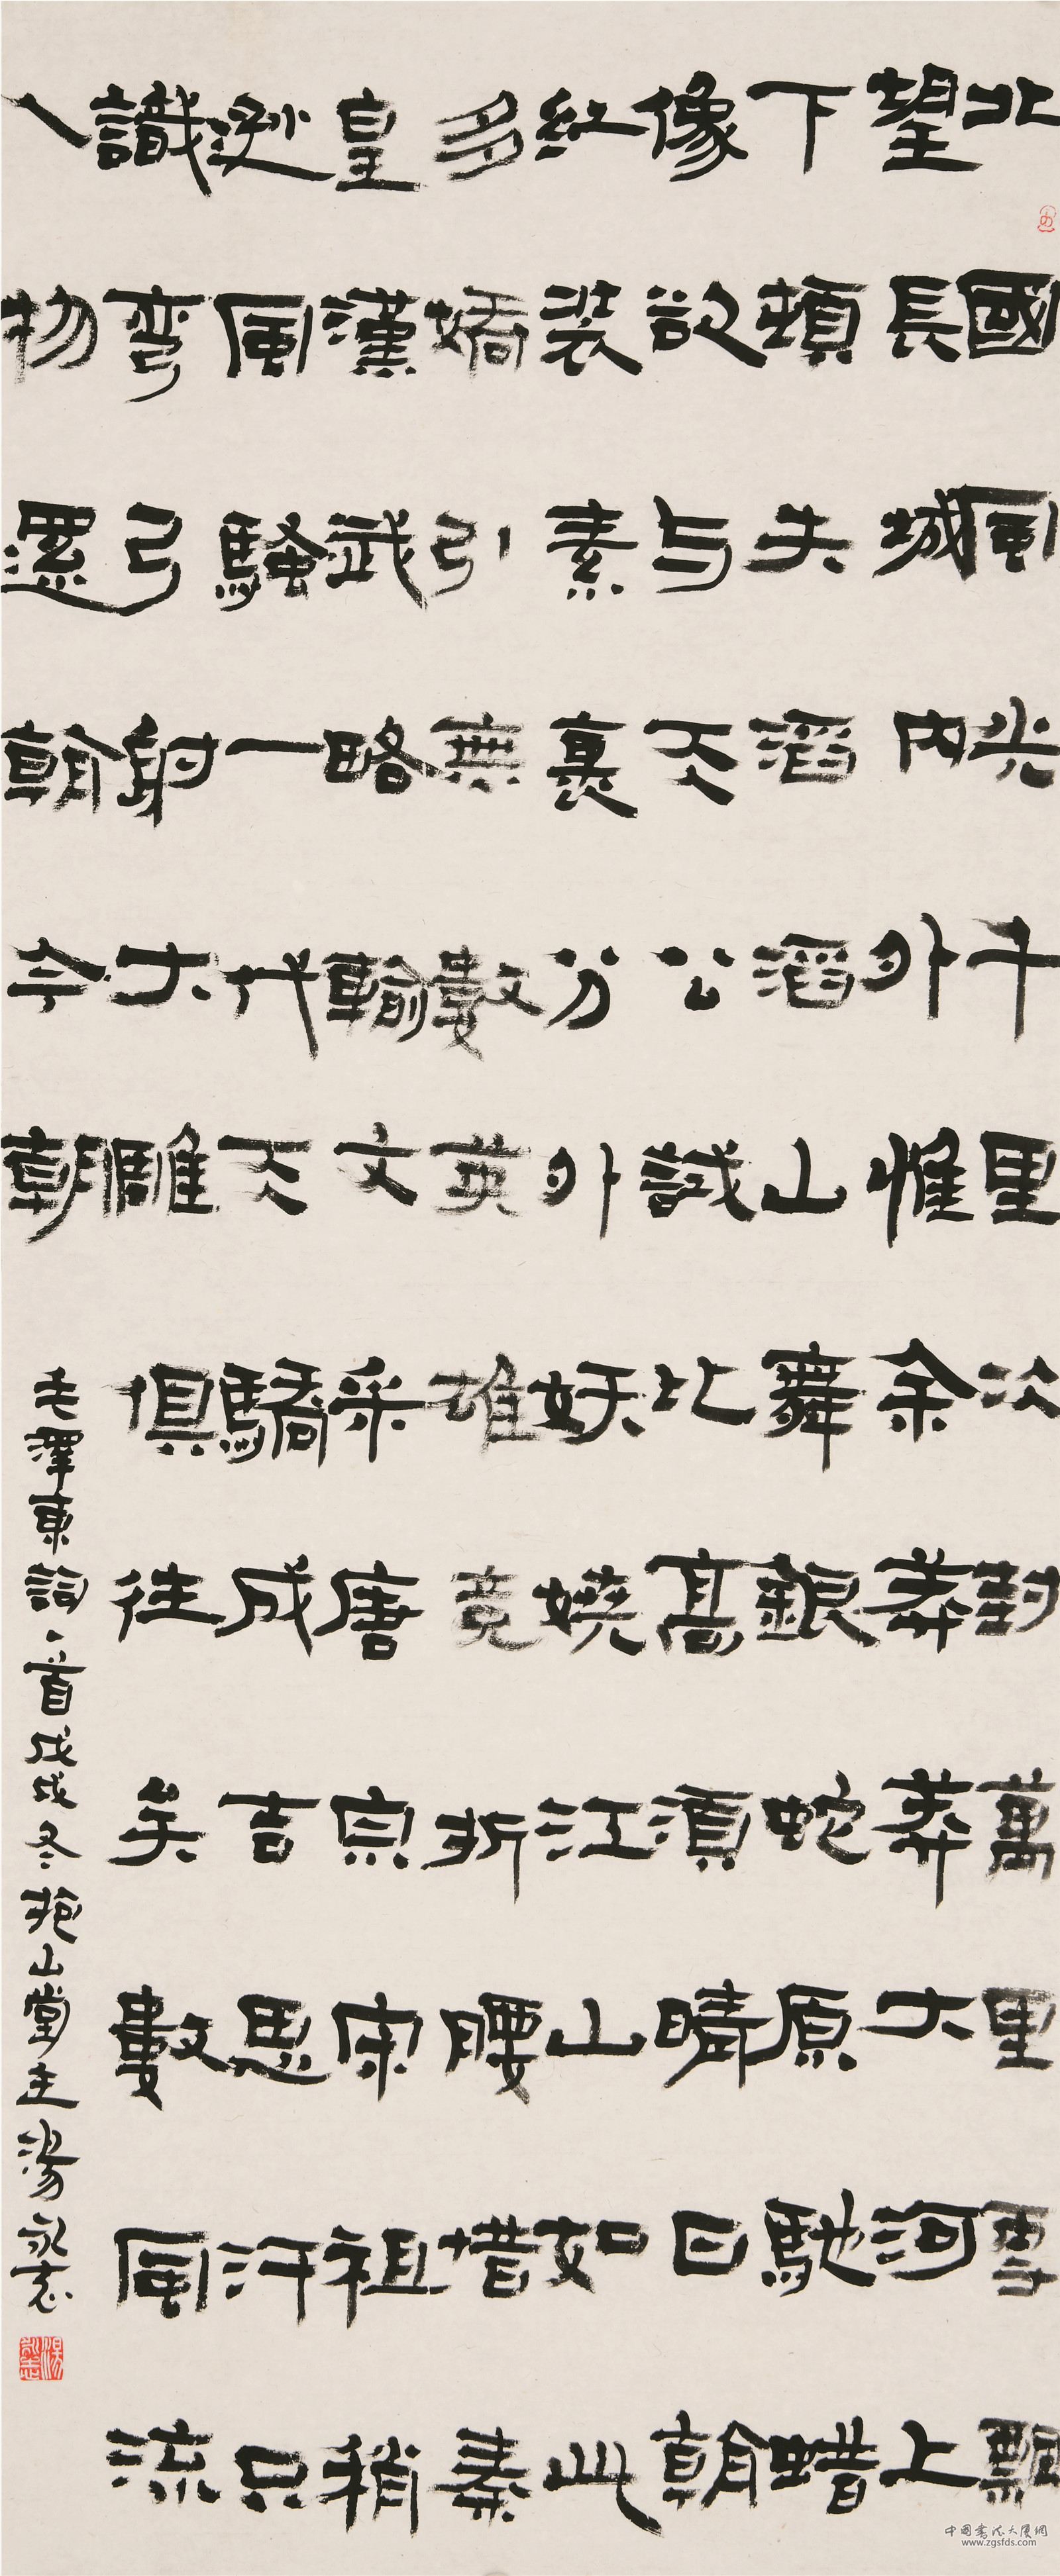 北國風光千里冰封萬里雪飄
望長城内外惟余莽莽大河上
下頓失滔滔山舞銀蛇原馳蜡
像欲与天公試比高須晴日看
紅裝素裹分外妖嬈江山如此
多嬌引無數英雄竞折腰惜秦
皇漢武略輸文采唐宗宋祖稍
遜風騷一代天驕成吉思汗只
識弯弓射大雕俱往矣數風流
人物還看今朝
毛澤東詞一首戊戌冬抱山堂主湯永志
湯永志
中国書法大厦網
www.zgsfds.com